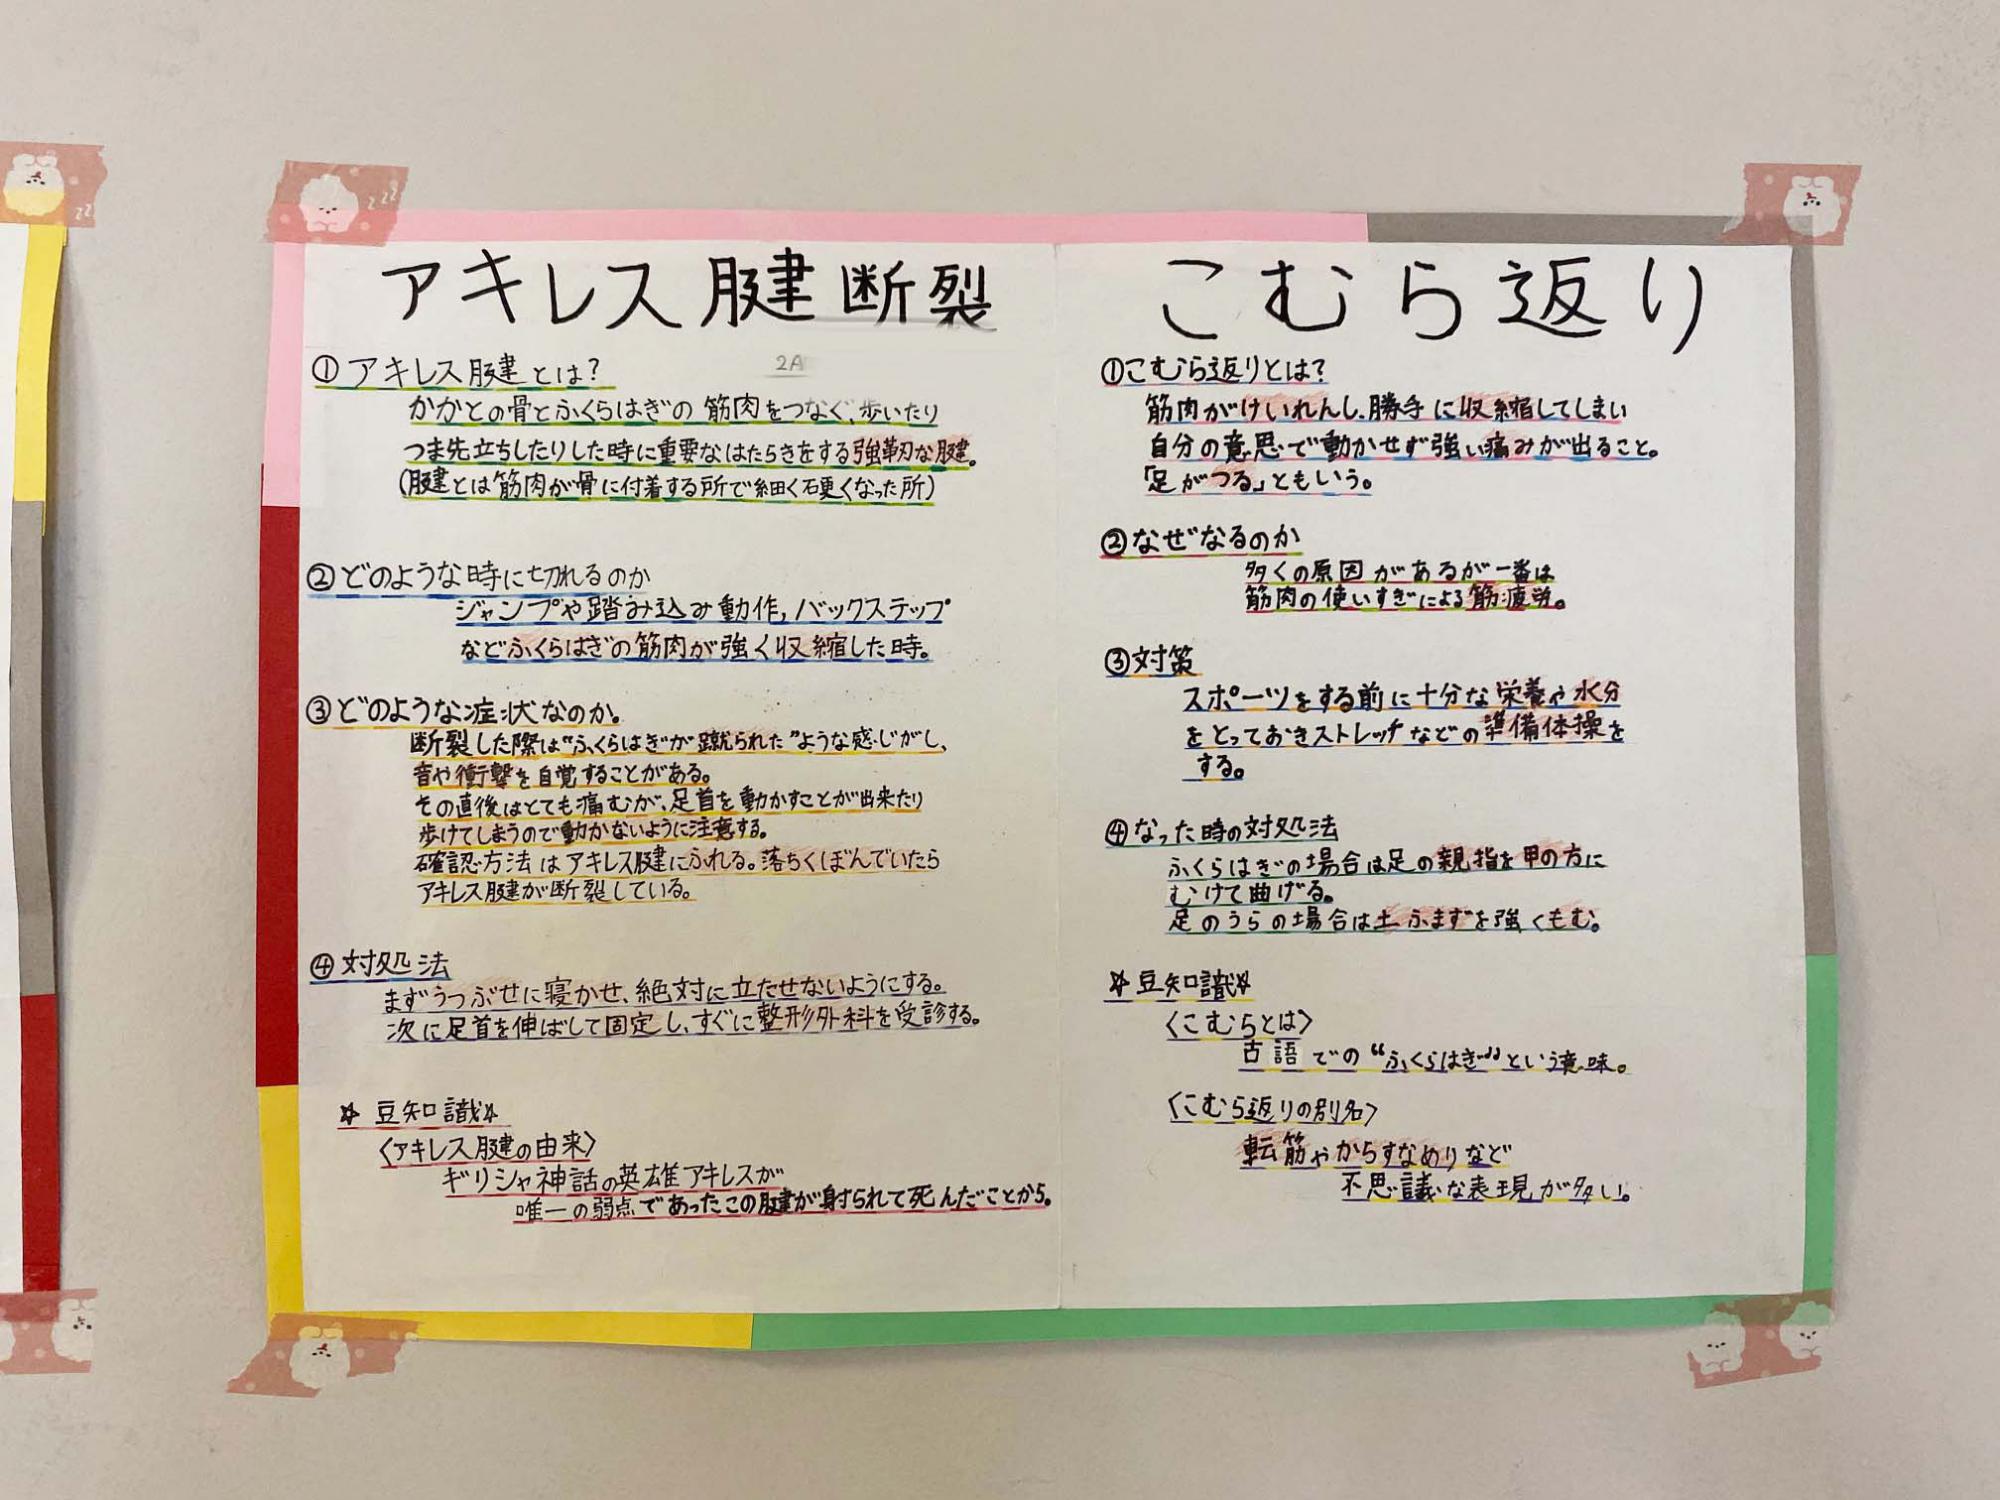 アキレス腱断裂
2A
①アキレス腱とは?
かかとの骨とふくらはぎの筋肉をつなぐ、歩いたり
つま先立ちしたりした時に重要なはたらきをする強靭な腱。
(腱とは筋肉が骨に付着する所で細く硬くなった所)
②どのような時に切れるのか
ジャンプや踏み込み動作,バックステップ
などふくらはぎの筋肉が強く収縮した時。
③どのような症状なのか。
断裂した際は“ふくらはぎが蹴られた”ような感じがし、
音や衝撃を自覚することがある。
その直後はとても痛むが、足首を動かすことが出来たり
歩けてしまうので動かないように注意する。
確認方法はアキレス腱にふれる。落ちくぼんでいたら
アキレス腱が断裂している。
④対処法
まずうつぶせに寝かせ、絶対に立たせないようにする。
次に足首を伸ばして固定し、すぐに整形外科を受診する。
☆豆知識☆
〈アキレス腱の由来〉
ギリシャ神話の英雄アキレスが
唯一の弱点であったこの腱が射られて死んだことから。
こむら返り
①こむら返りとは?
筋肉がけいれんし、勝手に収縮してしまい
自分の意思で動かせず強い痛みが出ること。
「足がつる」ともいう。
②なぜなるのか
多くの原因があるが一番は
筋肉の使いすぎによる筋疲労。
③対策
スポーツをする前に十分な栄養や水分
をとっておきストレッチなどの準備体操を
する。
④なった時の対処法
ふくらはぎの場合は足の親指を甲の方に
むけて曲げる。
足のうらの場合は土ふまずを強くもむ。
☆豆知識☆
〈こむらとは〉
古語での“ふくらはぎ”という意味。
〈こむら返りの別名〉
転筋やからすなめりなど
不思議な表現が多い。